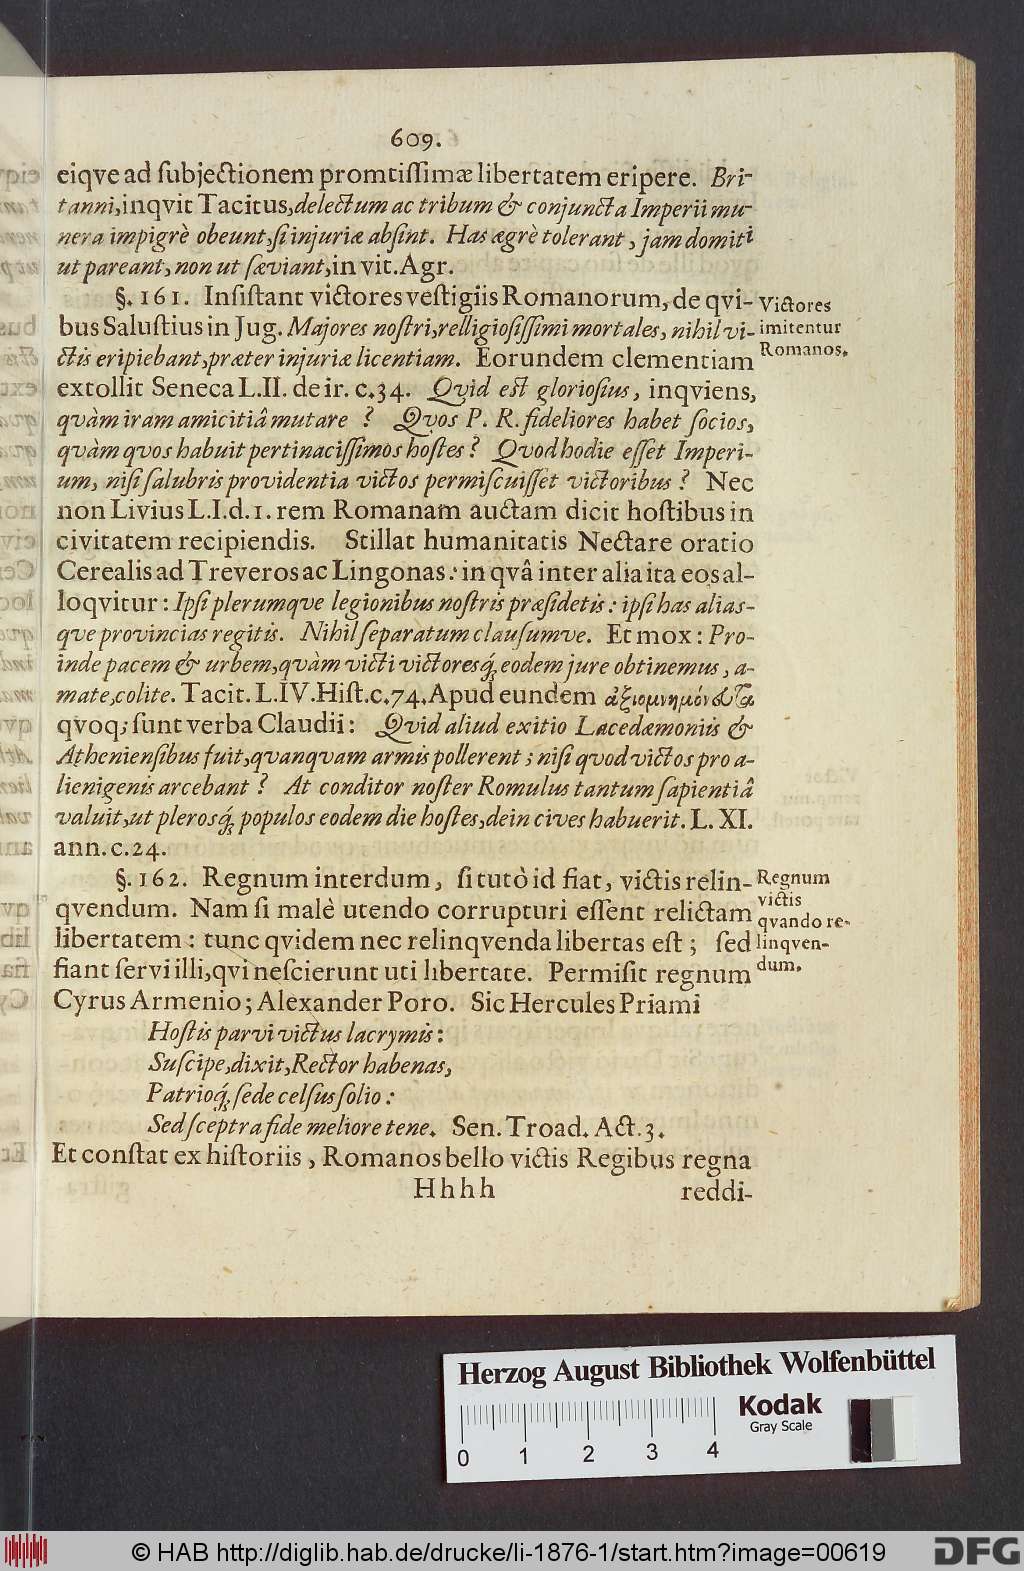 609.
eiqve ad subjectionem promtissimæ libertatem eripere. Bri-
tanni, inqvit Tacitus, delectum ac tribum & conjuncta Imperii mu-
nera impigrè obeunt, si injuriæ absint. Has ægrè tolerant, jam domiti
ut pareant, non ut sæviant, in vit. Agr.
§. 161. Insistant victores vestigiis Romanorum, de qvi-
bus Salustius in Jug. Majores nostri, relligiosissimi mortales, nihil vi-
ctis eripiebant, præter injuriæ licentiam. Eorundem clementiam
extollit Seneca L. II. de ir. c. 34. Qvid est gloriosius, inqviens,
quàm iram amicitiâ mutare ? Qvos P. R. fideliores habet socios,
quàm quos habuit pertinacissimos hostes ? Qvod hodie esset Imperi-
um, nisi salubris providentia victos permiscuisset victoribus ? Nec
non Livius L. I. d. 1. rem Romanam auctam dicit hostibus in
civitatem recipiendis. Stillat humanitatis Nectare oratio
Cerealis ad Treveros ac Lingonas: in qvâ inter alia ita eos al-
loqvitur: Ipsi plerumqve legionibus nostris præsidetis: ipsi has alias-
que provincias regitis. Nihil separatum clausumve. Et mox: Pro-
inde pacem & urbem, quàm victi victoresq́; eodem jure obtinemus, a-
mate, colite. Tacit. L. IV. Hist. c. 74. Apud eundem ἀξιομνημόνευτα
qvoq; sunt verba Claudii: Qvid aliud exitio Lacedæmoniis &
Atheniensibus fuit, quanquam armis pollerent; nisi quod victos pro a-
lienigenis arcebant ? At conditor noster Romulus tantum sapientiâ
valuit, ut plerosq́; populos eodem die hostes, dein cives habuerit. L. XI.
ann. c. 24.
Victores
imitentur
Romanos.
§. 162. Regnum interdum, si tutò id fiat, victis relin-
qvendum. Nam si malè utendo corrupturi essent relictam
libertatem: tunc qvidem nec relinqvenda libertas est; sed
fiant servi illi, qvi nescierunt uti libertate. Permisit regnum
Cyrus Armenio; Alexander Poro. Sic Hercules Priami
Hostis parvi victus lacrymis:
Suscipe, dixit, Rector habenas,
Patrioq́; sede celsus solio:
Sed sceptra fide meliore tene. Sen. Troad. Act. 3.
Et constat ex historiis, Romanos bello victis Regibus regna
Regnum
victis
qvando re-
linqven-
dum.
Hhhh
reddi-
Herzog August Bibliothek Wolfenbüttel
Kodak
Gray Scale
0 1 2 3 4
© HAB http://diglib.hab.de/drucke/li-1876-1/start.htm?image=00619
DFG